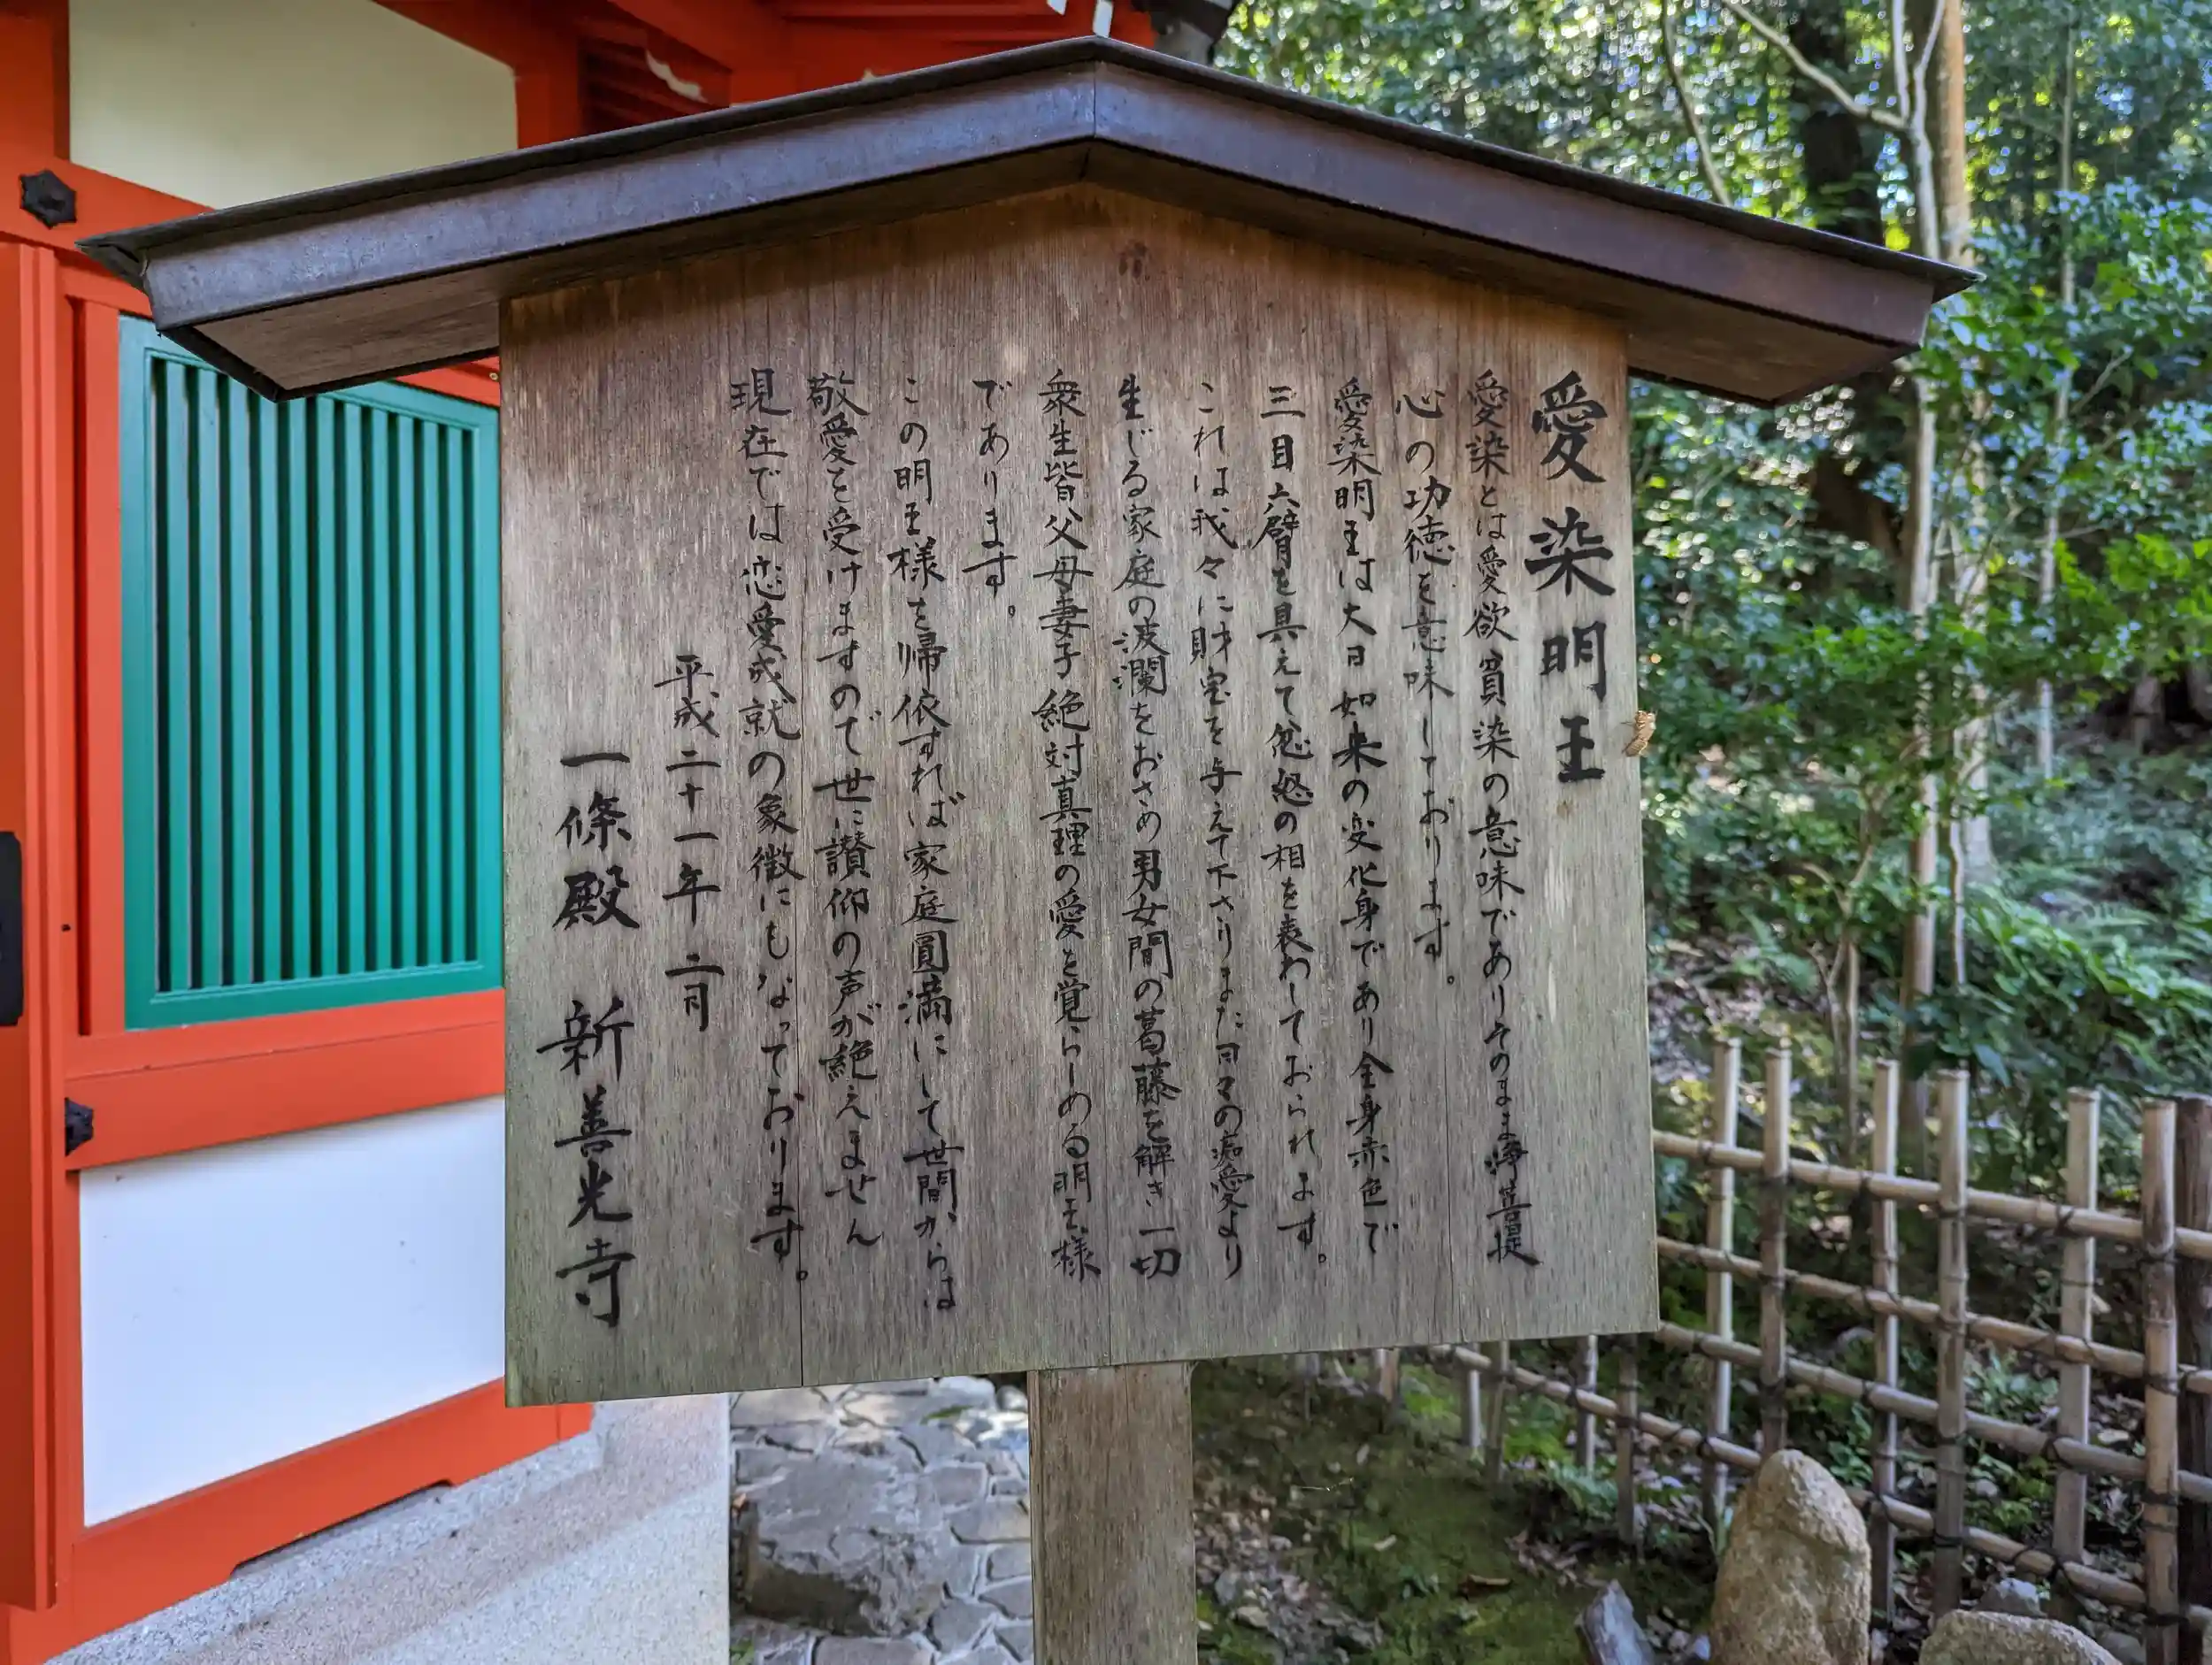 愛染明王
愛染とは愛欲貪染の意味でありそのまま浄菩提
心の功徳を意味しております。
愛染明王は大日如来の変化身であり全身赤色で
三目六臂を具えて忿怒の相を表わしておられます。
これは我々に財宝を与えて下さりまた日々の痴愛より
生じる家庭の波瀾をおさめ男女間の葛藤を解き一切
衆生皆父母妻子絶対真理の愛を覚らしめる明王様
であります。
この明王様を帰依すれば家庭圓満にして世間からは
敬愛を受けますので世に讃仰の声が絶えません
現在では恋愛成就の象徴にもなっております。
平成二十一年二月
一條殿 新善光寺